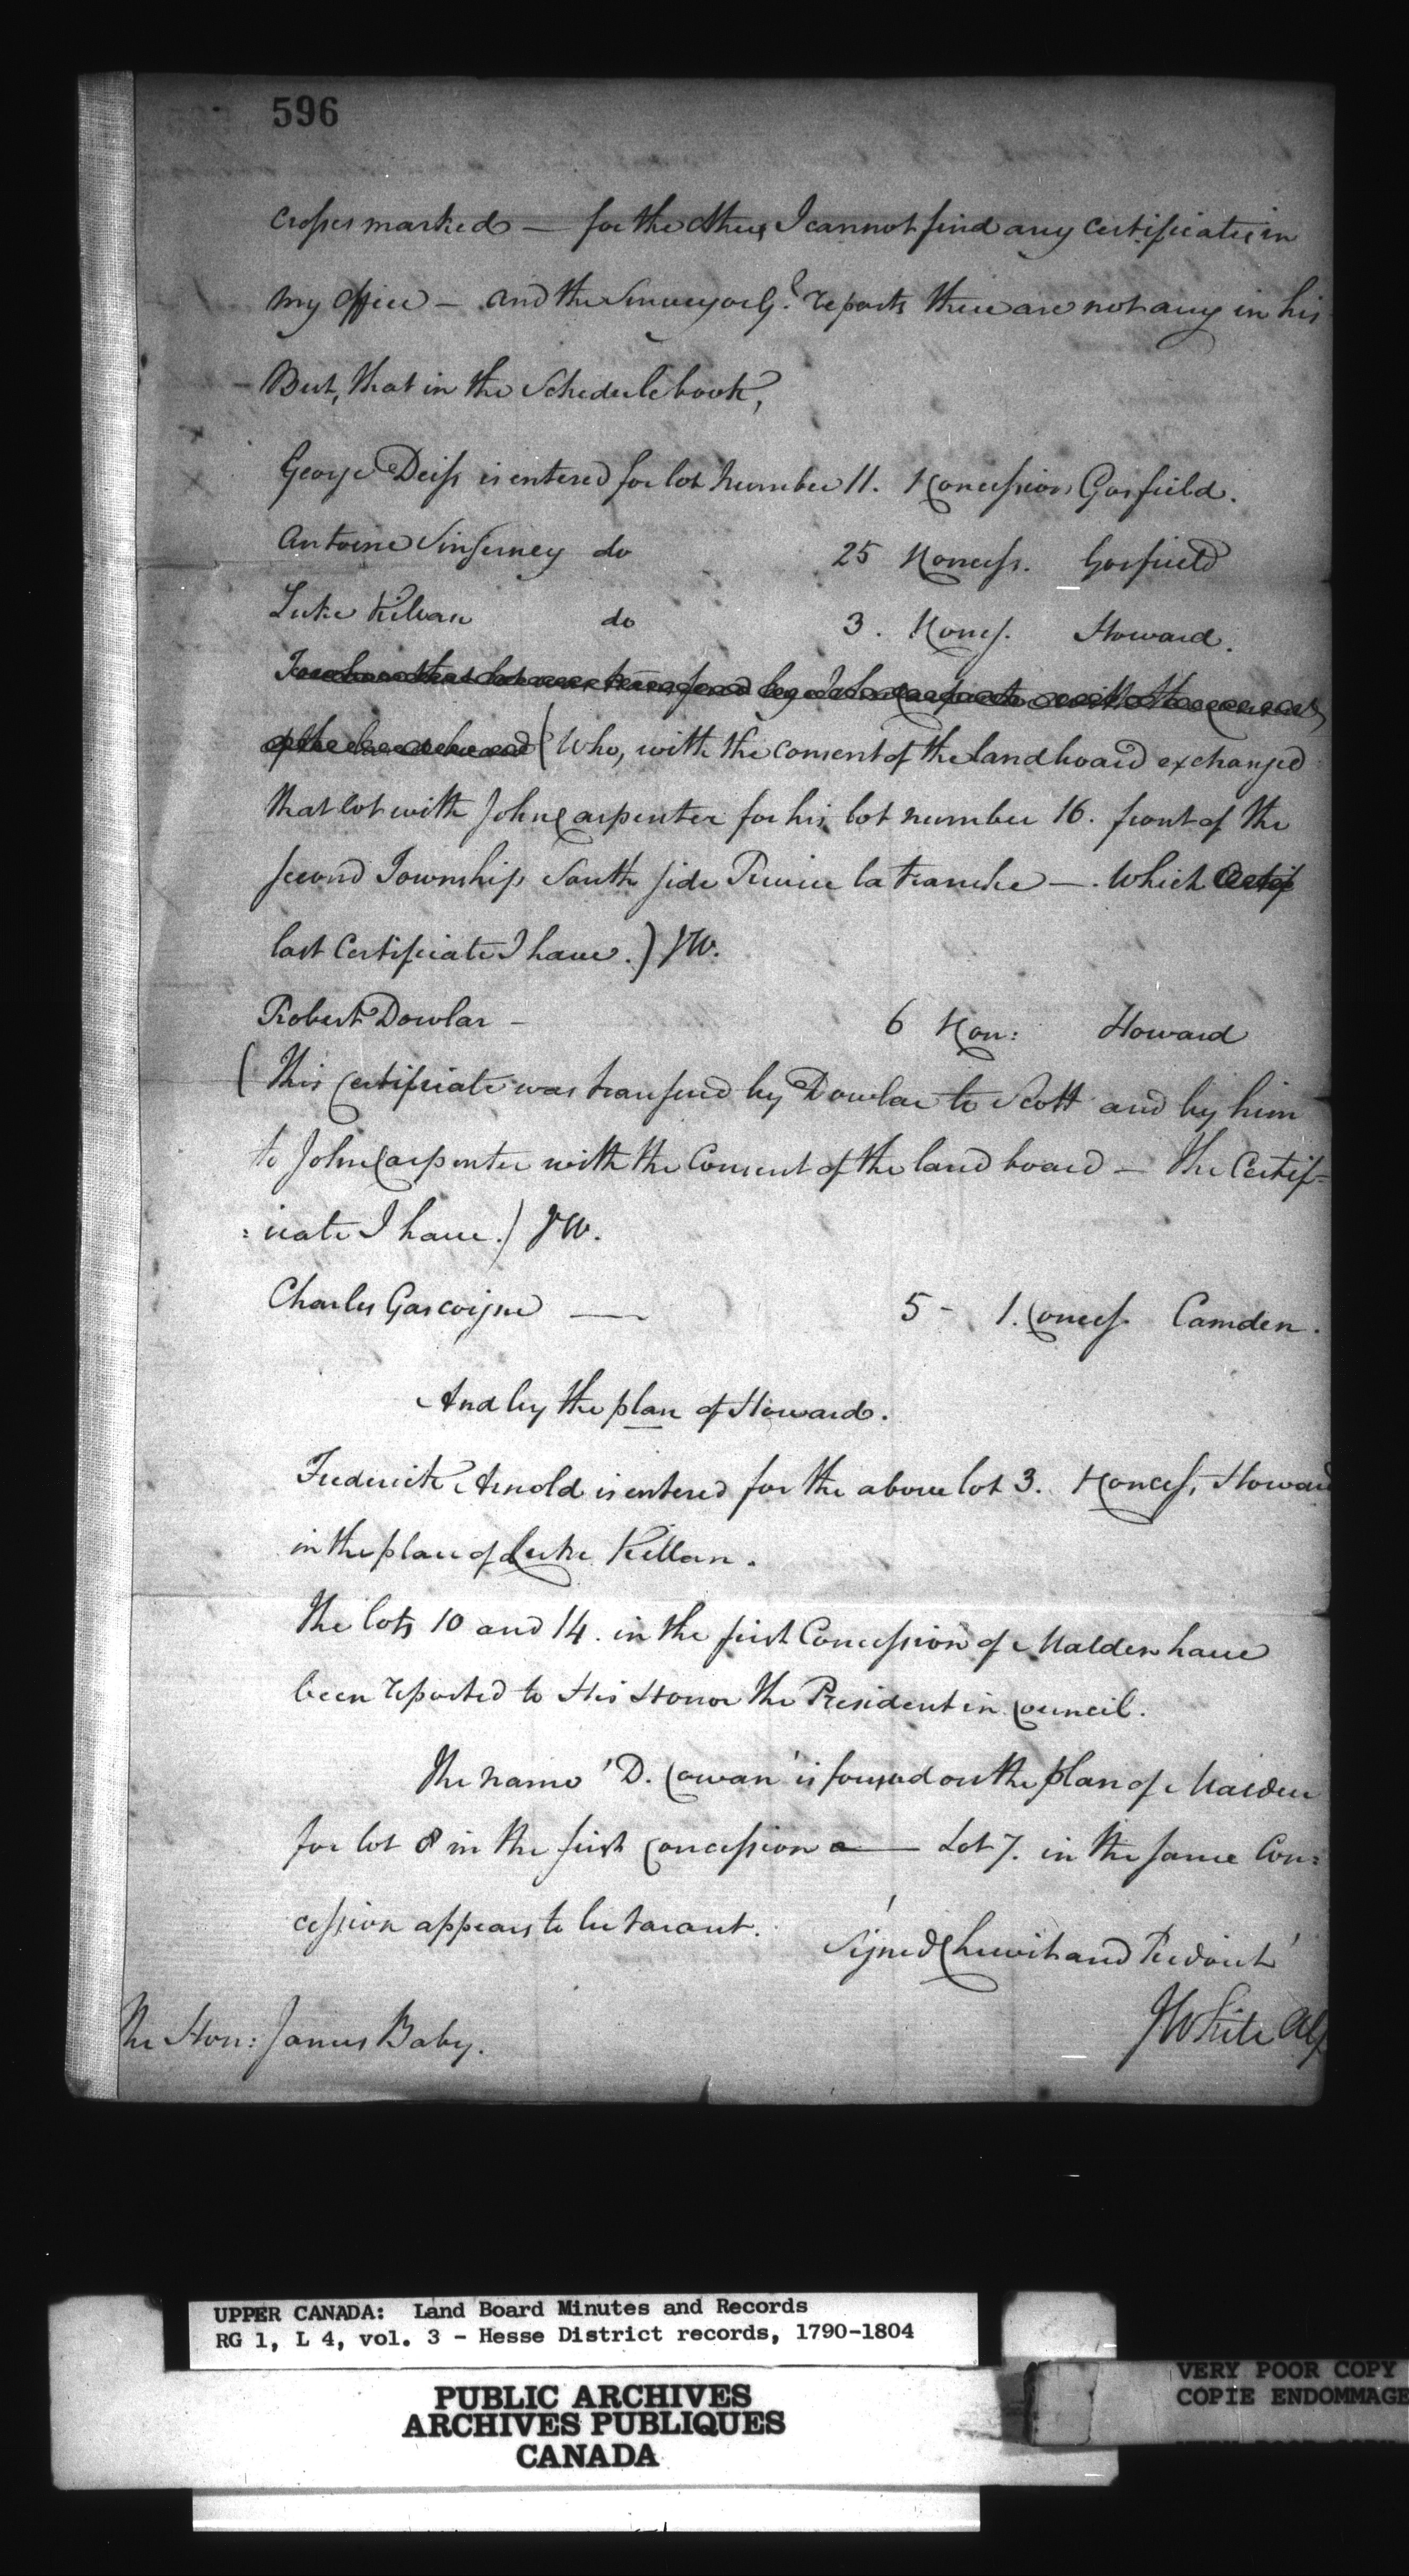 596
crosses marked — for the others I cannot find any certificates in
my office — and the Surveyor Gl. reports there are not any in his
But, that in the Schedule book,
George Deiss is entered for lot number 11. 1 Concession Gosfield.
Antoine do 25 1 Concess. Gosfield
Luke Kilban do 3. 1 Concs. Howard.
(Who, with the consent of the land board exchanged
that lot with John Carpenter for his lot number 16. front of the
second Township South side Riviere la tranche —. Which Certif
last Certificate I have.) JW.
Robert Dowlar – 6 1 Con: Howard
(This Certificate was transferd by Dowlar to Scott and by him
to John Carpenter with the Consent of the land board — The Certif=
=icate I have.) JW.
Charles Gascoigne — 5 - 1. Concess. Camden.
And by the plan of Howard.
Frederick Arnold is entered for the above lot 3. 1 Concess, Howard
in the place of Luke Killan.
The lots 10 and 14. in the first Concession of Malden have
been reported to His Honor the President in Council.
The name 'D. Cowan' is found on the plan of Malden
for lot 8 in the first Concession — Lot 7. in the same Con=
cession appears to be vacant.
'Signed Chewit and Ridout'
JWhite AG
The Hon: James Baby.
UPPER CANADA: Land Board Minutes and Records
RG 1, L 4, vol. 3 - Hesse District records, 1790-1804
PUBLIC ARCHIVES
ARCHIVES PUBLIQUES
CANADA
VERY POOR COPY
COPIE ENDOMMAGE